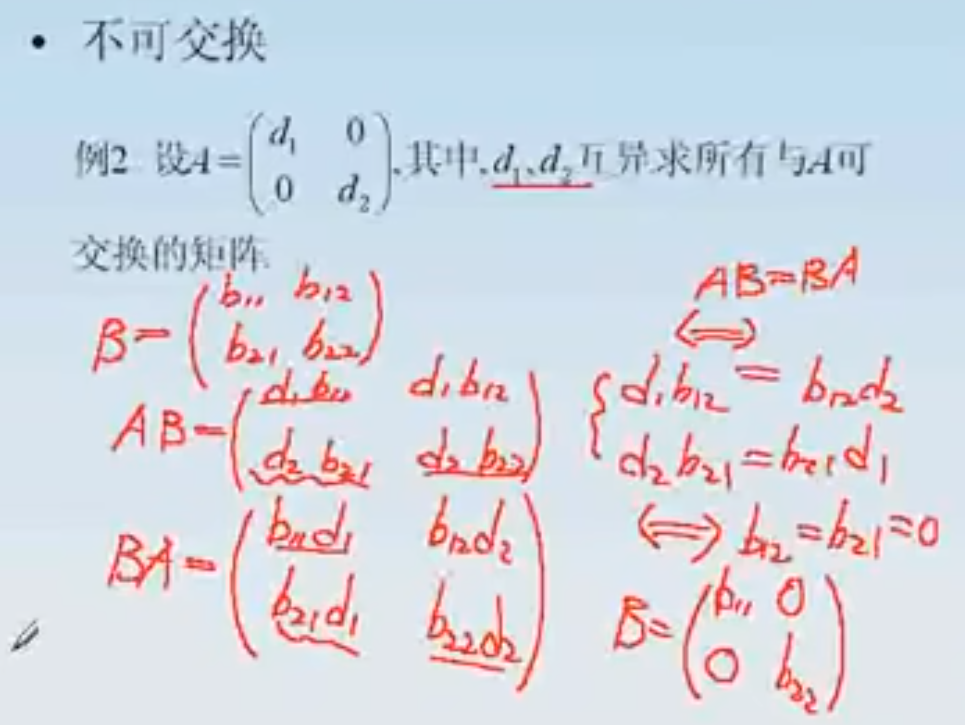 • 不可交换
例2 设A=(d₁ 0
0 d₂),其中,d₁、d₂互异求所有与A可
交换的矩阵.
B=(b₁₁ b₁₂
b₂₁ b₂₂)
AB=(d₁b₁₁ d₁b₁₂
d₂b₂₁ d₂b₂₂)
BA=(b₁₁d₁ b₁₂d₂
b₂₁d₁ b₂₂d₂)
AB=BA
⟺
{d₁b₁₂=b₁₂d₂
d₂b₂₁=b₂₁d₁
⟺ b₁₂=b₂₁=0
B=(b₁₁ 0
0 b₂₂)